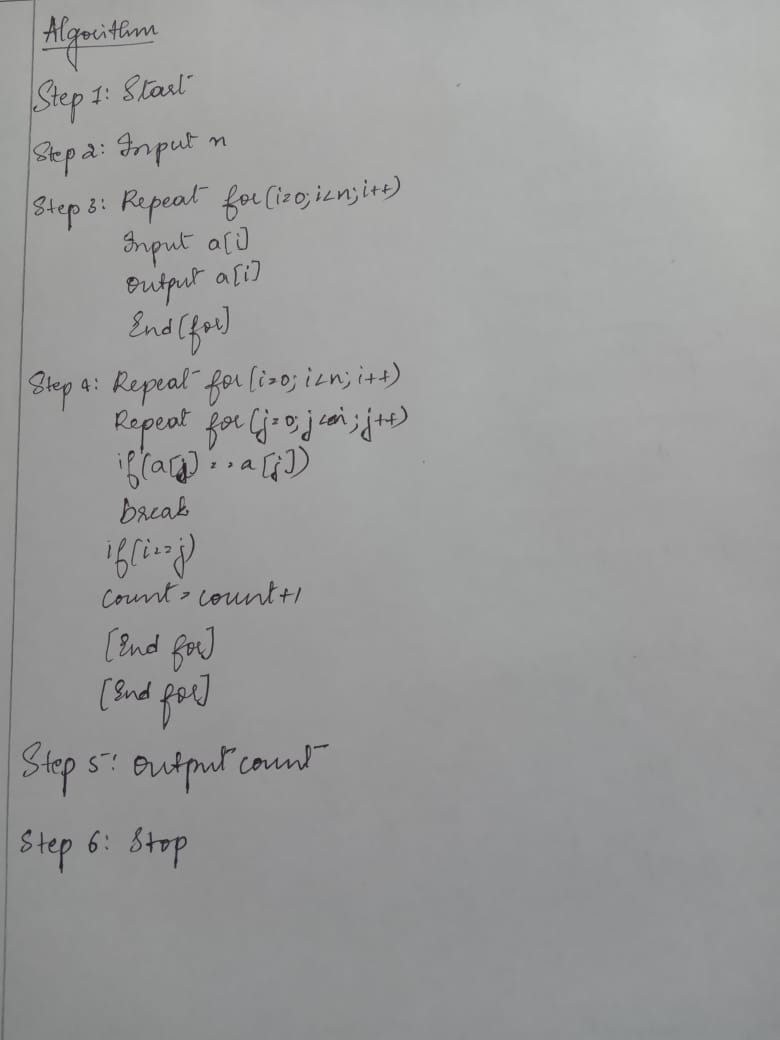 Algorithm
Step 1: Start
Step 2: Input n
Step 3: Repeat for(i=0; i<n; i++)
Input a[i]
Output a[i]
End[for]
Step 4: Repeat for(i=0; i<n; i++)
Repeat for(j=0; j<i; j++)
if(a[j] == a[j])
break
if(i==j)
count = count+1
[End for]
[End for]
Step 5: Output count
Step 6: Stop